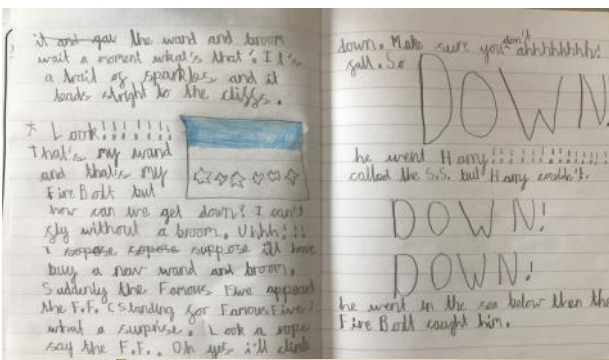 it and gav the wand and broom
wait a moment what's that? It's
a trail of sparkles and it
leads stright to the cliffs.
* Look!!!!!!!
that's my wand
and that's my
Fire Bolt but
how can we get down? I can't
fly without a broom. Uhhh!!!
I sopose sopose suppose ill have
buy a new wand and broom.
Suddenly the Famous Five appeard
the F.F. (Standing for Famous Five)
what a suprise. Look a rope
say the F.F.. Oh yes i'll climb
down. Make sure you don't ahhhhhhhh!
fall. So
DOWN!
he went Harry!!!!!!!!!!!!
called the S.S. but Harry couldn't.
DOWN!
DOWN!
he went in the sea below then the
Fire Bolt caught him.